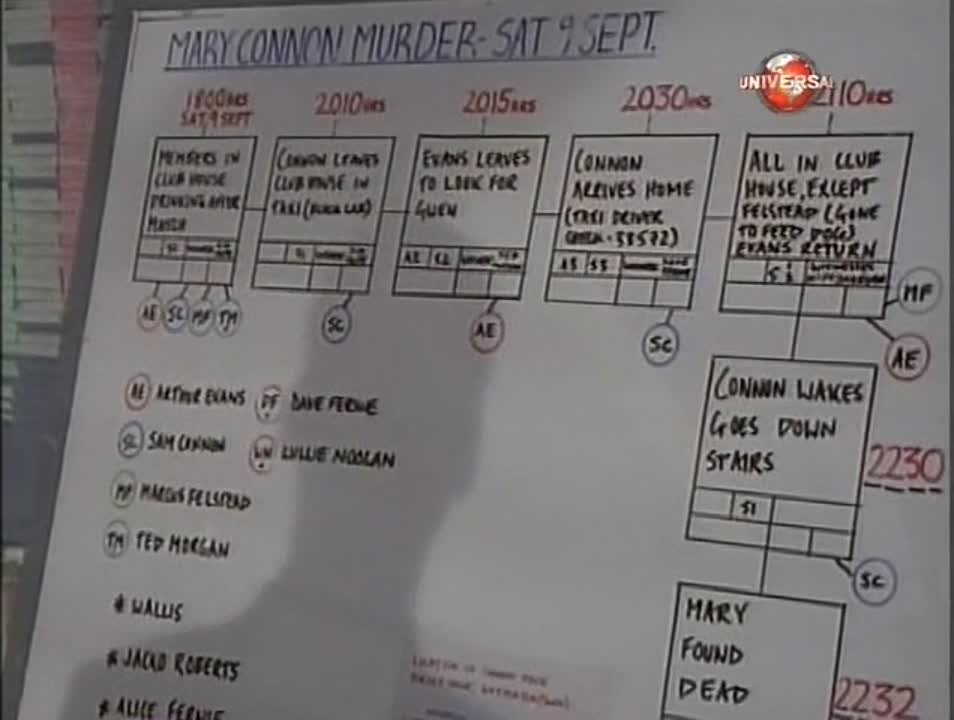 MARY CONNON MURDER - SAT 9 SEPT.
UNIVERSAL
1800HRS
SAT, 9 SEPT
2010HRS
2015HRS
2030HRS
2110HRS
MEMBERS IN
CLUB HOUSE
DRINKING AFTER
MATCH
CONNON LEAVES
CLUB HOUSE IN
TAXI (BLACK CAB)
EVANS LEAVES
TO LOOK FOR
GWEN
CONNON
ARRIVES HOME
(TAXI DRIVER
CHECK - 38572)
ALL IN CLUB
HOUSE, EXCEPT
FELSTEAD (GONE
TO FEED DOG)
EVANS RETURN
AE SC MF TM
SC
AE
SC
MF
AE
CONNON WAKES
GOES DOWN
STAIRS
2230
S1
SC
MARY
FOUND
DEAD
2232
AE ARTHUR EVANS
SC SAM CONNON
MF MARCUS FELSTEAD
TM TED MORGAN
DF DAVE FERNIE
* WALLIS
* JACKO ROBERTS
* ALICE FERNIE